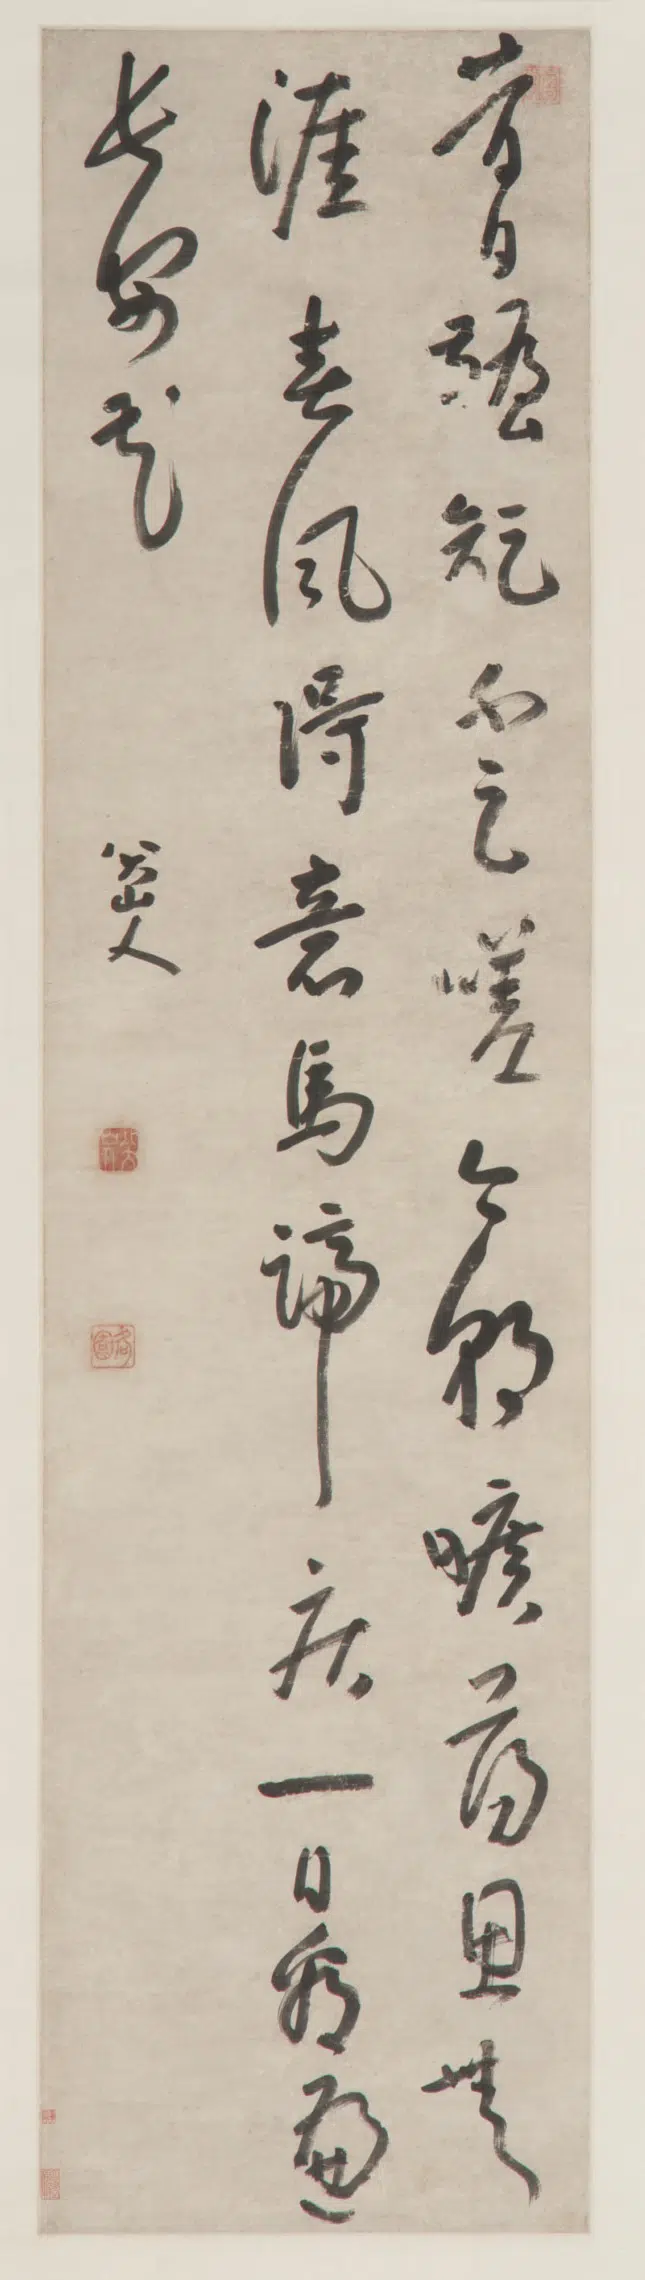 昔日齷齪不足嗟今朝曠蕩思無
涯春風得意馬蹄疾一日看遍
長安花
八大山人